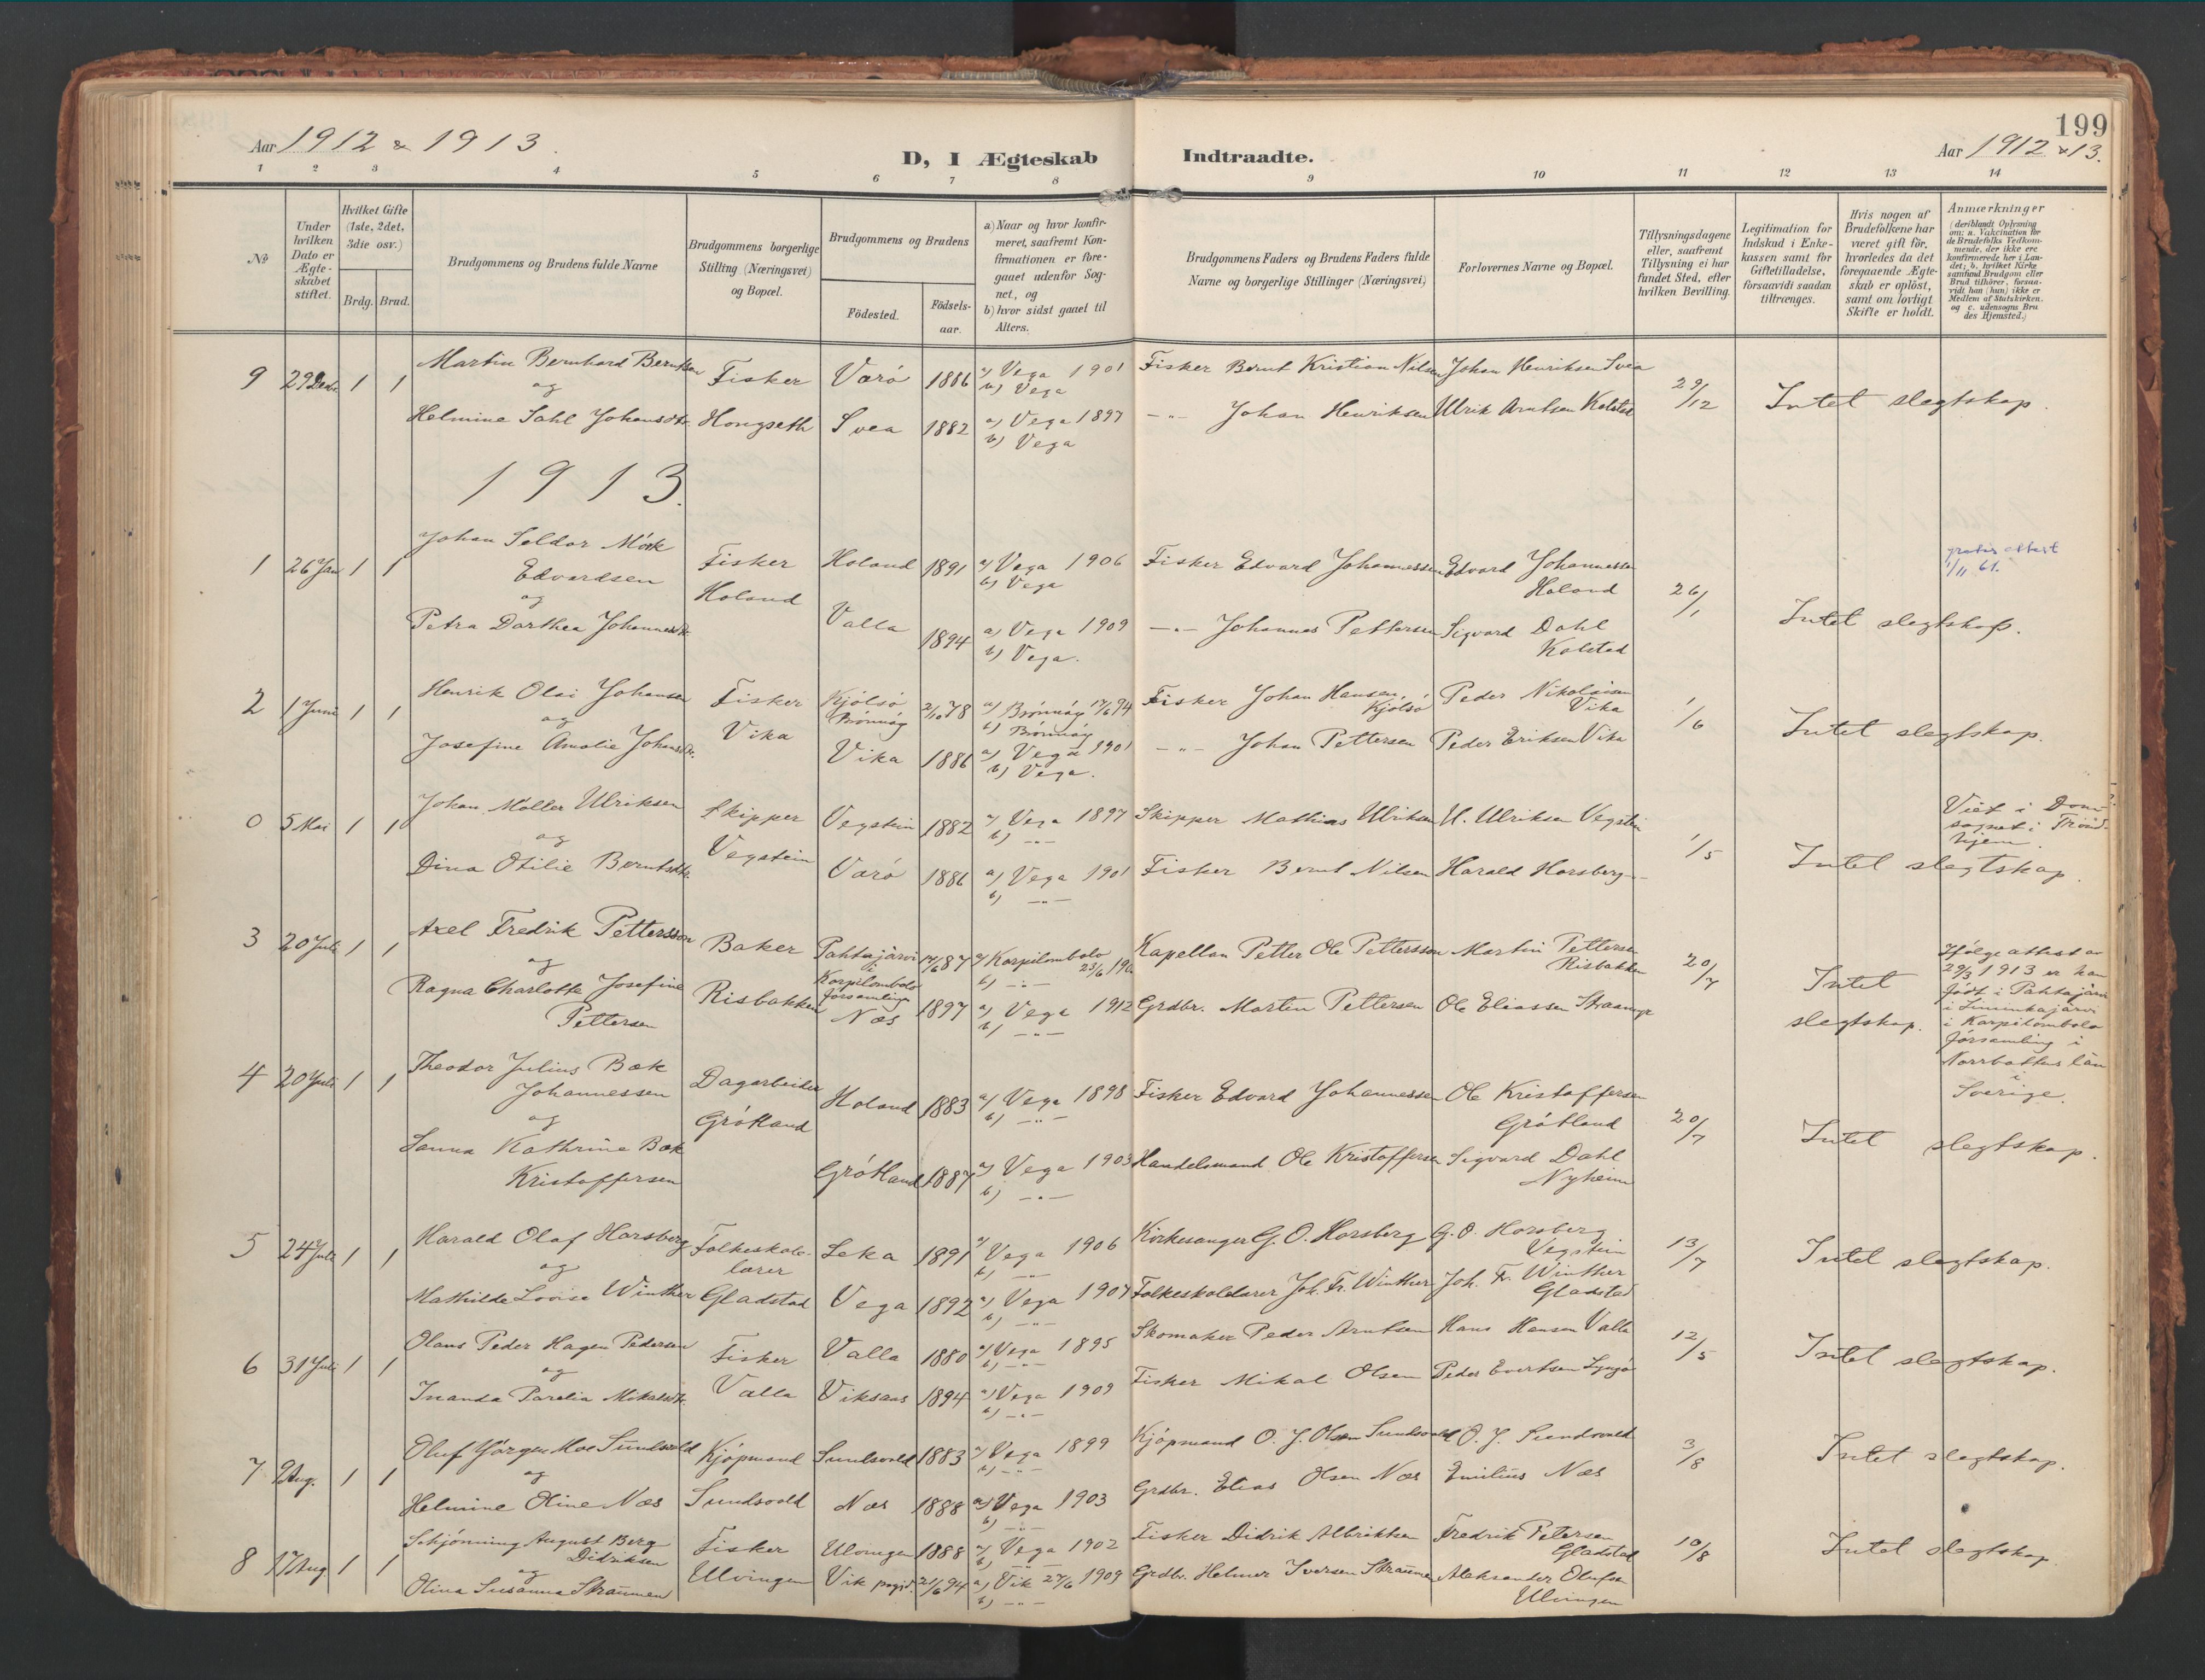 199
Aar 1912 & 1913.
D, I Ægteskab Indtraadte.
Aar 1912 & 13.
1 2 3 4 5 6 7 8 9 10 11 12 13 14
No
Under hvilken Dato er Ægteskabet stiftet.
Hvilket Gifte (1ste, 2det, 3die osv.)
Brdg. Brud.
Brudgommens og Brudens fulde Navne
Brudgommens borgerlige Stilling (Næringsvei) og Bopæl.
Brudgommens og Brudens
Födested.
Födselsaar.
a) Naar og hvor konfirmeret, saafremt Konfirmationen er foregaaet udenfor Sognet, og
b) hvor sidst gaaet til Alters.
Brudgommens Faders og Brudens Faders fulde Navne og borgerlige Stillinger (Næringsvei)
Forlovernes Navne og Bopæl.
Tillysningsdagene eller, saafremt Tillysning ei har fundet Sted, efter hvilken Bevilling.
Legitimation for Indskud i Enkekassen samt for Giftetilladelse, forsaavidt saadan tiltrænges.
Hvis nogen af Brudefolkene har været gift för, hvorledes da det foregaaende Ægteskab er oplöst, samt om lovligt Skifte er holdt.
Anmærkninger (deriblandt Oplysning om: a. Vakcination for de Brudefolks Vedkommende, der ikke ere konfirmerede her i Landet; b. hvilket Kirkesamfund Brudgom eller Brud tilhörer, forsaavidt han (hun) ikke er Medlem af Statskirken. og c. udensogns Brudes Hjemsted.)
9 29 Decbr. 1 1 Martin Bernhard Berntsen Fisker Varö 1886 a) Vega 1901 b) Vega Fisker Bernt Kristian Nilsen Johan Henriksen Svea 29/12 Intet slegtskap.
og
Helmine Dahl Johansdtr. Hongseth Svea 1882 a) Vega 1897 b) Vega —"— Johan Henriksen Ulrik Arntsen Kolstad
1913.
1 26 Jan 1 1 Johan Seldor Mörk Edvardsen Fisker Holand 1891 a) Vega 1906 b) Vega Fisker Edvard Johannessen Edvard Johannessen Holand 26/1 Intet slegtskap. gratis attest 1/11 61.
og Holand
Petra Dorthea Johannesdtr. Valla 1894 a) Vega 1909 b) Vega. —"— Johannes Pettersen Sigvard Dahl Kolstad
2 1 Juni 1 1 Henrik Olai Johansen Fisker Kjölsö Brönnöy 2/10 78 a) Brönnöy 17/6 94 b) Brönnöy Fisker Johan Hansen, Kjölsö Peder Nikolaisen Vika 1/6 Intet slegtskap.
og Vika
Josefine Amalie Johansdtr. Vika 1886 a) Vega 1901 b) Vega. —"— Johan Pettersen Peder Eriksen Vika
0 5 Mai 1 1 Johan Möller Ulriksen Skipper Vegstein 1882 a) Vega 1897 b) —"— Skipper Mathias Ulriksen U. Ulriksen Vegstein 1/5 Intet slegtskap. Viet i Domsognet i Trondhjem.
og Vegstein
Dina Otilie Berntsdtr. Varö 1886 a) Vega 1901 b) —"— Fisker Bernt Nilsen Harald Horsberg
3 20 Juli 1 1 Axel Fredrik Pettersson Baker Pahtajärvi i Korpilombolo församling 14/6 87 a) Korpilombolo 23/6 b) —"— Kapellan Petter Ole Pettersson Martin Pettersen Risbakken 20/7 Intet slegtskap.
og Risbakken
Ragna Charlotte Josefine Pettersen Næs 1897 a) Vega 1912 b) —"— Grdbr. Martin Pettersen Ole Eliassen
Ifölge attest av 29/3 1913 er han födt i Pahtajärvi i Korpilombolo församling i Norrbottens län i Sverige.
4 20 Juli 1 1 Theodor Julius Bæk Johannessen Dagarbeider Holand 1883 a) Vega 1898 b) —"— Fisker Edvard Johannessen Ole Kristoffersen Grötland 20/7 Intet slegtskap.
og Grötland
Sanna Kathrine Bæk Kristoffersen Grötland 1887 a) Vega 1903 b) —"— Handelsmand Ole Kristoffersen Sigvard Dahl Nyheim
5 24 Juli 1 1 Harald Olaf Horsberg Folkeskolelærer Leka 1891 a) Vega 1906 b) —"— Kirkesanger G. O. Horsberg G. O. Horsberg Vegstein 13/7 Intet slegtskap.
og
Mathilde Lovise Winther Gladstad Vega 1892 a) Vega 1907 b) —"— Folkeskolelærer Joh. Fr. Winther Joh. Fr. Winther Gladstad
6 31 Juli 1 1 Olaus Peder Hagen Pedersen Fisker Valla 1880 a) Vega 1895 b) —"— Skomaker Peder Arntsen Hans Hansen Valla 12/5 Intet slegtskap.
og Valla
Inanda Parelia Mikalsdtr. Viksaas 1894 a) Vega 1909 b) —"— Fisker Mikal Olsen Peder Evertsen
7 9 Aug. 1 1 Oluf Jörgen Moe Sundsvold Kjöpmand Sundsvold 1883 a) Vega 1899 b) —"— Kjöpmand O. J. Olsen Sundsvold O. J. Sundsvold 3/8 Intet slegtskap.
og
Helmine Oline Næs Sundsvold Næs 1888 a) Vega 1903 b) —"— Grdbr. Elias Olsen Næs Emilius Næs
8 17 Aug 1 1 Schjönning August Berg Didriksen Fisker Ulvingen 1888 a) Vega 1902 b) —"— Fisker Didrik Albrikten Fredrik Petersen Gladstad 10/8 Intet slegtskap.
og Ulvingen
Olina Susanna Straumen Vik prgjd. 21/6 94 a) Vik 27/6 1909 b) —"— Grdbr. Helmer Iversen Straumen Aleksander Olufsen Ulvingen